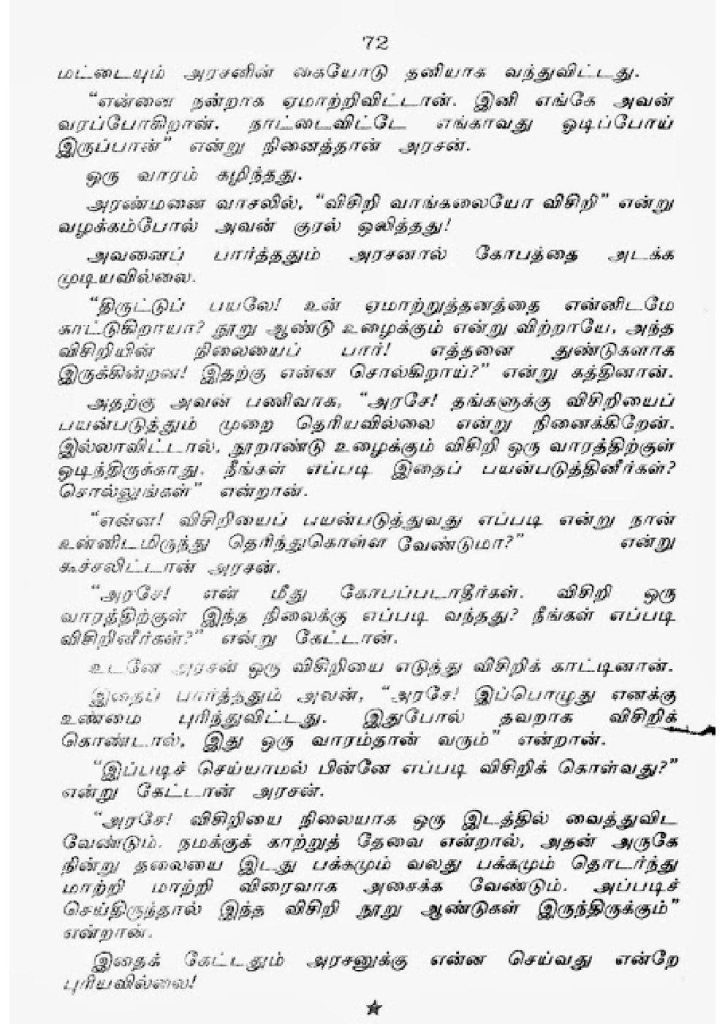 72
மட்டையும் அரசனின் கையோடு தனியாக வந்துவிட்டது.
"என்னை நன்றாக ஏமாற்றிவிட்டான். இனி எங்கே அவன்
வரப்போகிறான். நாட்டைவிட்டே எங்காவது ஓடிப்போய்
இருப்பான்" என்று நினைத்தான் அரசன்.
ஒரு வாரம் கழிந்தது.
அரண்மனை வாசலில், "விசிறி வாங்கலையோ விசிறி" என்று
வழக்கம்போல் அவன் குரல் ஒலித்தது!
அவனைப் பார்த்ததும் அரசனால் கோபத்தை அடக்க
முடியவில்லை.
"திருட்டுப் பயலே! உன் ஏமாற்றுத்தனத்தை என்னிடமே
காட்டுகிறாயா? நூறு ஆண்டு உழைக்கும் என்று விற்றாயே, அந்த
விசிறியின் நிலையைப் பார்! எத்தனை துண்டுகளாக
இருக்கின்றன! இதற்கு என்ன சொல்கிறாய்?" என்று கத்தினான்.
அதற்கு அவன் பணிவாக, "அரசே! தங்களுக்கு விசிறியைப்
பயன்படுத்தும் முறை தெரியவில்லை என்று நினைக்கிறேன்.
இல்லாவிட்டால், நூறாண்டு உழைக்கும் விசிறி ஒரு வாரத்திற்குள்
ஒடிந்திருக்காது. நீங்கள் எப்படி இதைப் பயன்படுத்தினீர்கள்?
சொல்லுங்கள்" என்றான்.
"என்ன! விசிறியைப் பயன்படுத்துவது எப்படி என்று நான்
உன்னிடமிருந்து தெரிந்துகொள்ள வேண்டுமா?" என்று
கூச்சலிட்டான் அரசன்.
"அரசே! என் மீது கோபப்படாதீர்கள். விசிறி ஒரு
வாரத்திற்குள் இந்த நிலைக்கு எப்படி வந்தது? நீங்கள் எப்படி
விசிறினீர்கள்?" என்று கேட்டான்.
உடனே அரசன் ஒரு விசிறியை எடுத்து விசிறிக் காட்டினான்.
இதைப் பார்த்ததும் அவன், "அரசே! இப்பொழுது எனக்கு
உண்மை புரிந்துவிட்டது. இதுபோல் தவறாக விசிறிக்
கொண்டால், இது ஒரு வாரம்தான் வரும்" என்றான்.
"இப்படிச் செய்யாமல் பின்னே எப்படி விசிறிக் கொள்வது?"
என்று கேட்டான் அரசன்.
"அரசே! விசிறியை நிலையாக ஒரு இடத்தில் வைத்துவிட
வேண்டும். நமக்குக் காற்றுத் தேவை என்றால், அதன் அருகே
நின்று தலையை இடது பக்கமும் வலது பக்கமும் தொடர்ந்து
மாற்றி மாற்றி விரைவாக அசைக்க வேண்டும். அப்படிச்
செய்திருந்தால் இந்த விசிறி நூறு ஆண்டுகள் இருந்திருக்கும்"
என்றான்.
இதைக் கேட்டதும் அரசனுக்கு என்ன செய்வது என்றே
புரியவில்லை!